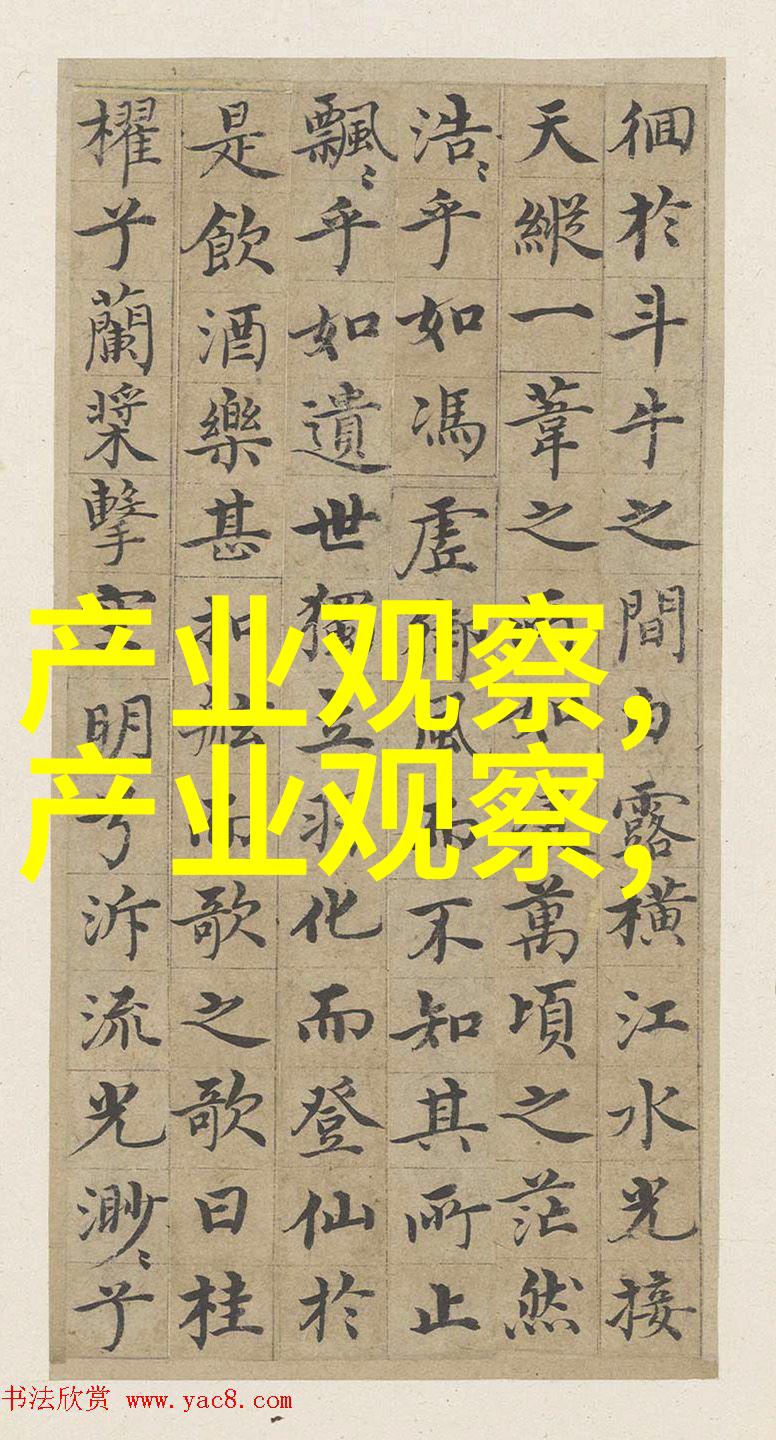 徊於斗牛之間白露橫江水光接
天縱一葦之如萬頃之茫然
浩〻乎如馮虛御風而不知其所止
飄〻乎如遺世獨立羽化而登仙於
是飲酒樂甚扣舷而歌之歌曰桂
櫂兮蘭槳擊空明兮泝流光渺〻兮
产业观察,
产业观察,
书法欣赏 www.yac8.com